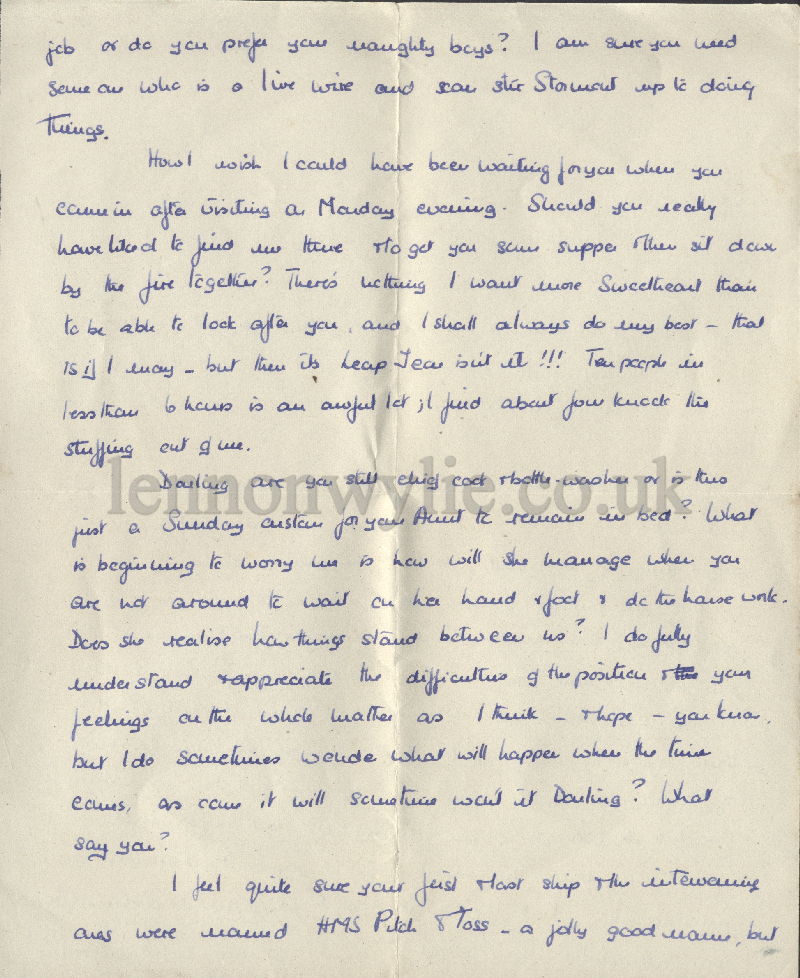 job or do you prefer your naughty boys? I am sure you need
someone who is a live wire and can stir Stormont up to doing
things.
How I wish I could have been waiting for you when you
came in after visiting on Monday evening. Should you really
have liked to find me there & to get you some supper & then sit down
by the fire together? There's nothing I want more Sweetheart than
to be able to look after you, and I shall always do my best – that
is if I may – but then it's heap I can isn't it!!! Ten people in
less than 6 hours is an awful lot, I find about four knock the
stuffing out of me.
lennonwylie.co.uk
Darling are you still chief cook & bottle-washer or is this
just a Sunday custom for your Aunt to remain in bed? What
is beginning to worry me is how will she manage when you
are not around to wait on her hand & foot & do the house work.
Does she realise how things stand between us? I do fully
understand & appreciate the difficulties of the position & your
feelings on the whole matter as I think – & hope – you know,
but I do sometimes wonder what will happen when the time
comes, as come it will sometime won't it Darling? What
say you?
I feel quite sure your first & last ship & the intervening
ones were named HMS Pitch & Toss – a jolly good name, but